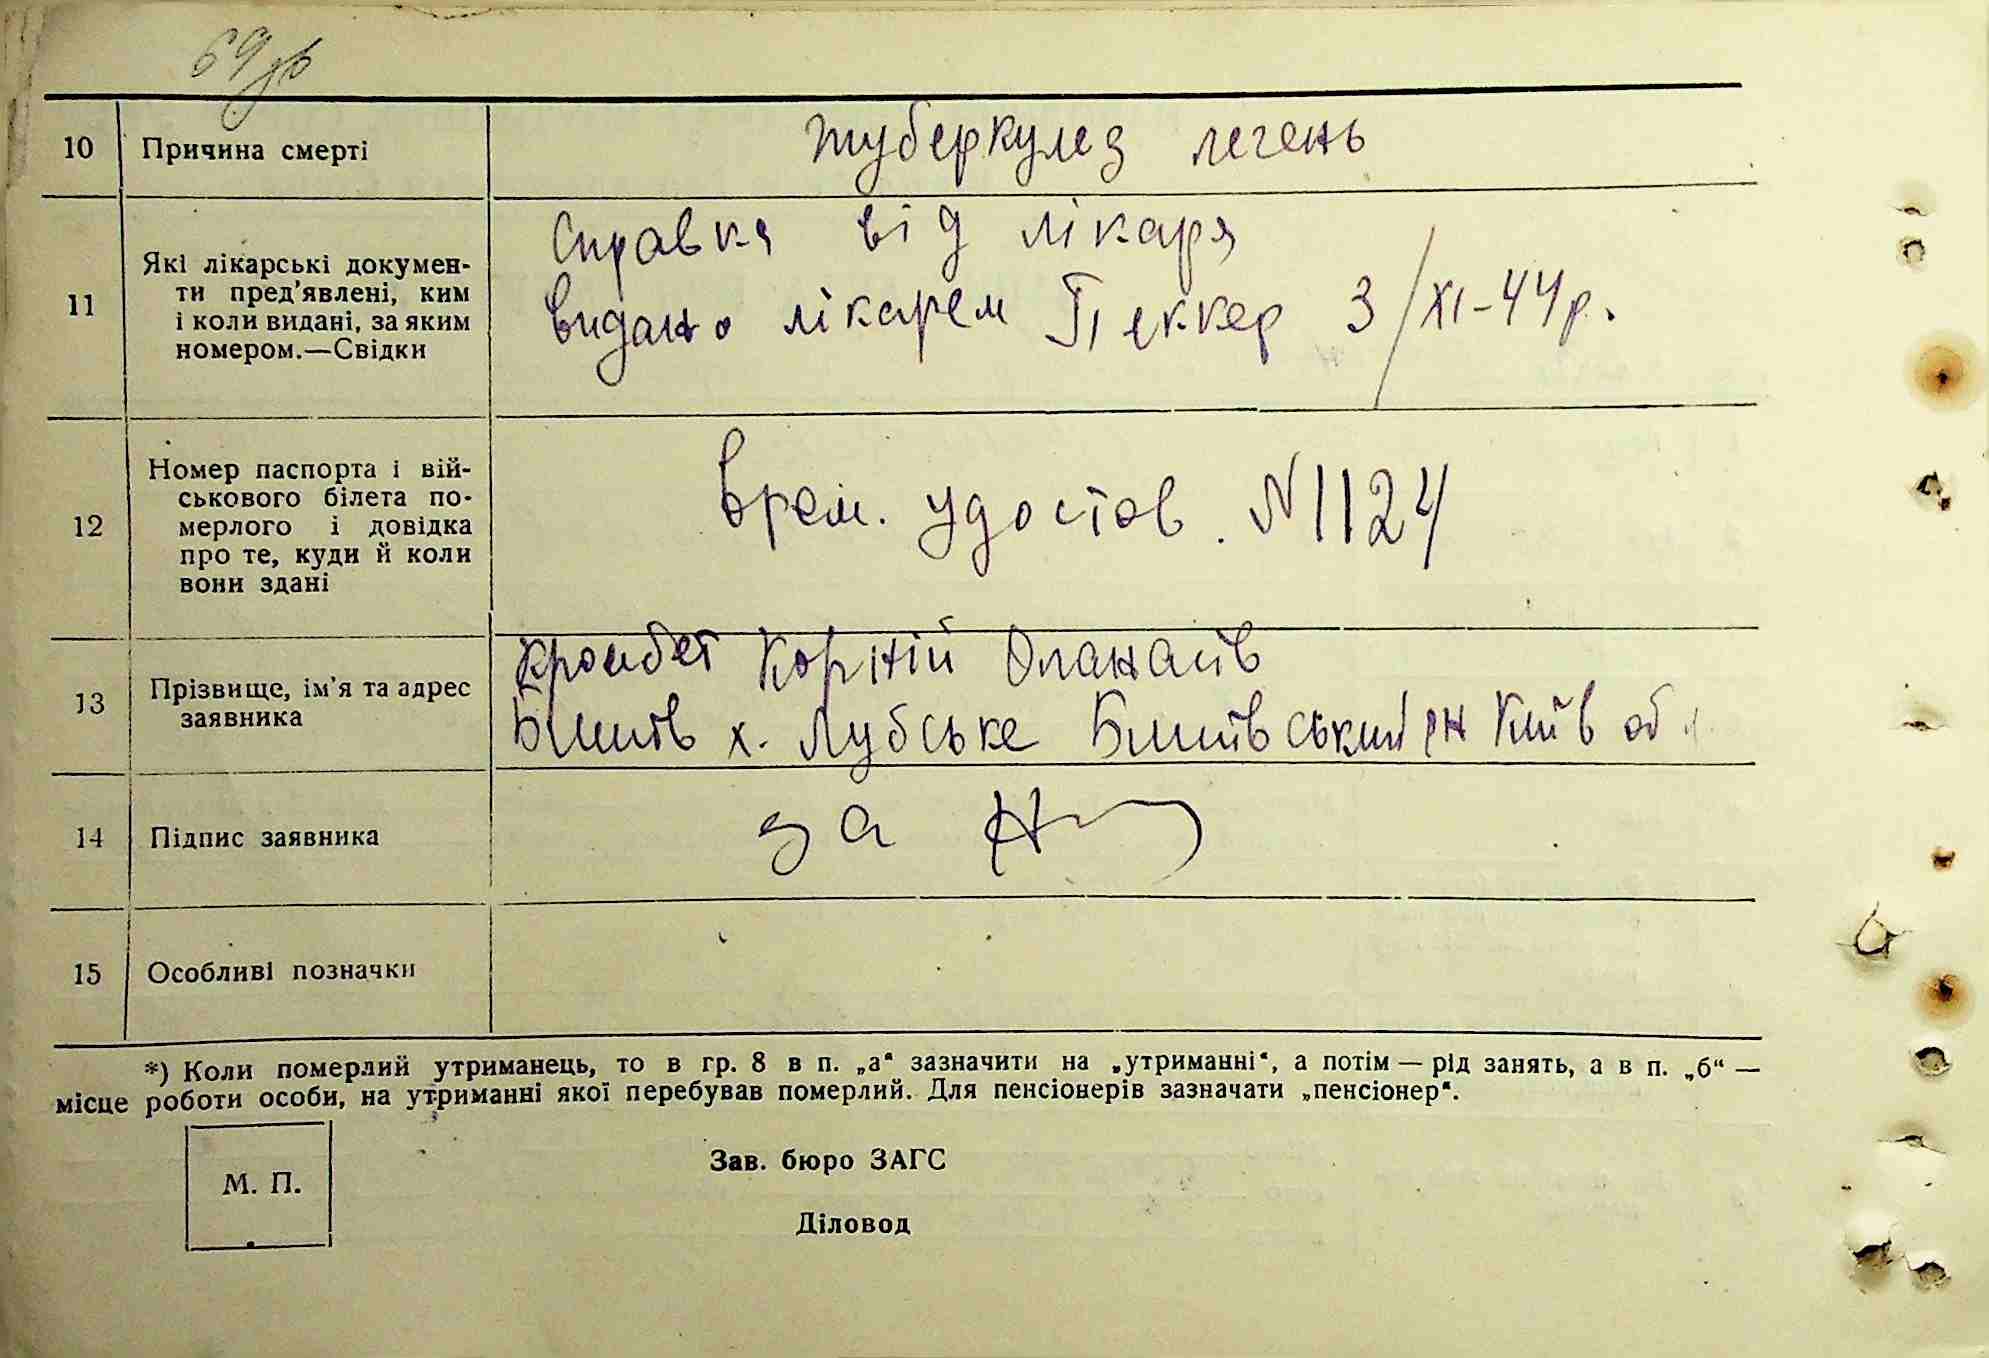 69 зв
10 Причина смерті туберкулез легень
Справка від лікаря
11 Які лікарські докумен-
ти пред'явлені, ким
і коли видані, за яким
номером.—Свідки
видано лікарем Пеккер 3/XI-44р.
12 Номер паспорта і вій-
ськового білета по-
мерлого і довідка
про те, куди й коли
вони здані
Врем. удостов. №1124
13 Прізвище, ім'я та адрес
заявника
Корній Опанасів
х. Лубське рн Київ обл
14 Підпис заявника за
15 Особливі позначки
*) Коли померлий утриманець, то в гр. 8 в п. „а“ зазначити на „утриманні“, а потім — рід занять, а в п. „б“ —
місце роботи особи, на утриманні якої перебував померлий. Для пенсіонерів зазначати „пенсіонер“.
М. П.
Зав. бюро ЗАГС
Діловод